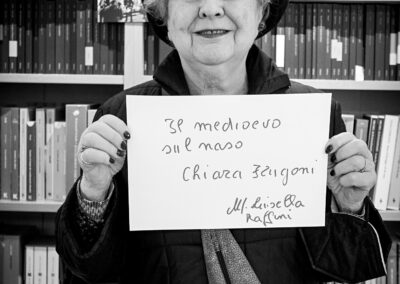 Il medioevo
sul naso
Chiara Frugoni
M. Luisella
Raffini